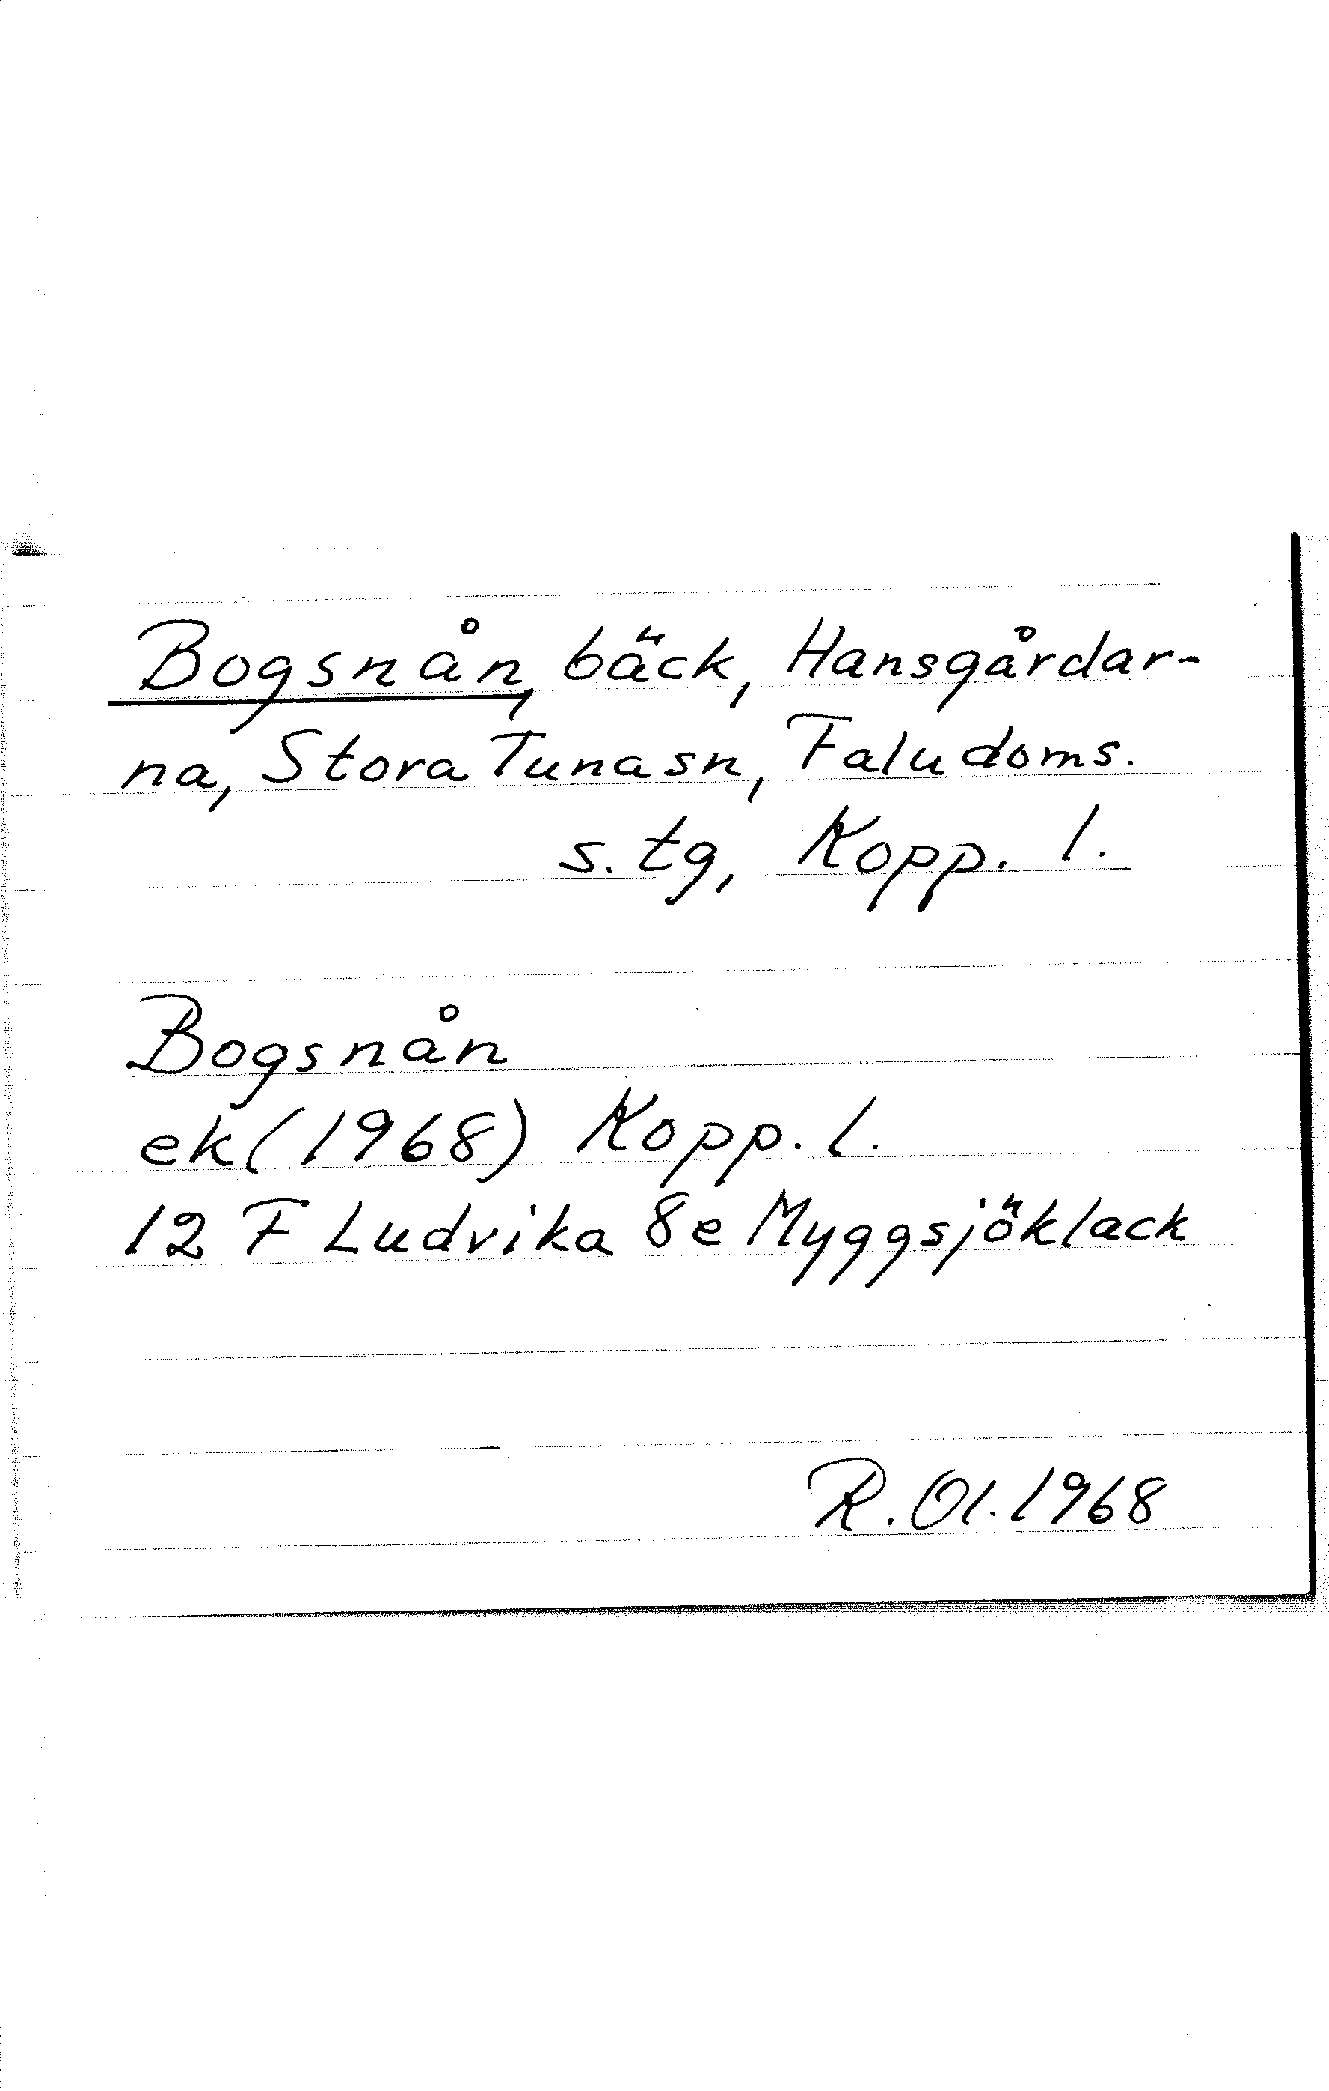 Bogsnån, bäck, Hansgårdar-
na, Stora Tuna sn, Falu doms.
s. tg, Kopp. l.
Bogsnån
ek (1968) Kopp. l.
12 F Ludvika 8e Myggsjöklack
R. Ol. 1968